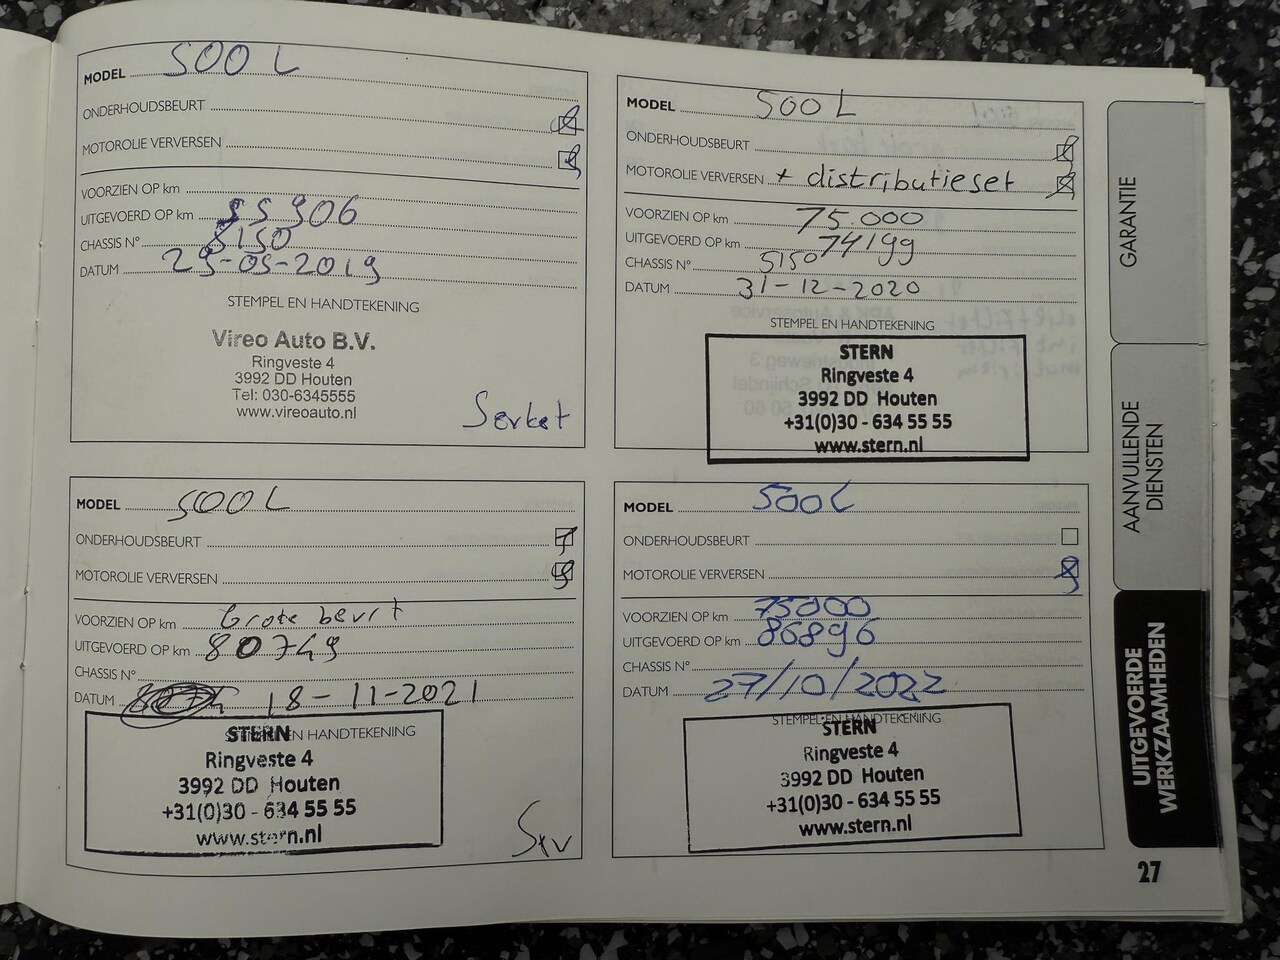 MODEL 500 L
ONDERHOUDSBEURT
MOTOROLIE VERVERSEN
VOORZIEN OP km
UITGEVOERD OP km 55906
CHASSIS N° 5150
DATUM 29-05-2019
STEMPEL EN HANDTEKENING
Vireo Auto B.V.
Ringveste 4
3992 DD Houten
Tel: 030-6345555
www.vireoauto.nl
MODEL 500 L
ONDERHOUDSBEURT
MOTOROLIE VERVERSEN + distributieset
VOORZIEN OP km 75.000
UITGEVOERD OP km 74199
CHASSIS N° 5150
DATUM 31-12-2020
STEMPEL EN HANDTEKENING
STERN
Ringveste 4
3992 DD Houten
+31(0)30 - 634 55 55
www.stern.nl
MODEL 500 L
ONDERHOUDSBEURT
MOTOROLIE VERVERSEN
VOORZIEN OP km Grote beurt
UITGEVOERD OP km 80749
CHASSIS N°
DATUM 18-11-2021
STEMPEL EN HANDTEKENING
STERN
Ringveste 4
3992 DD Houten
+31(0)30 - 634 55 55
www.stern.nl
MODEL 500L
ONDERHOUDSBEURT
MOTOROLIE VERVERSEN
VOORZIEN OP km 75000
UITGEVOERD OP km 86896
CHASSIS N°
DATUM 27/10/2022
STEMPEL EN HANDTEKENING
STERN
Ringveste 4
3992 DD Houten
+31(0)30 - 634 55 55
www.stern.nl
GARANTIE
AANVULLENDE
DIENSTEN
UITGEVOERDE
WERKZAAMHEDEN
27